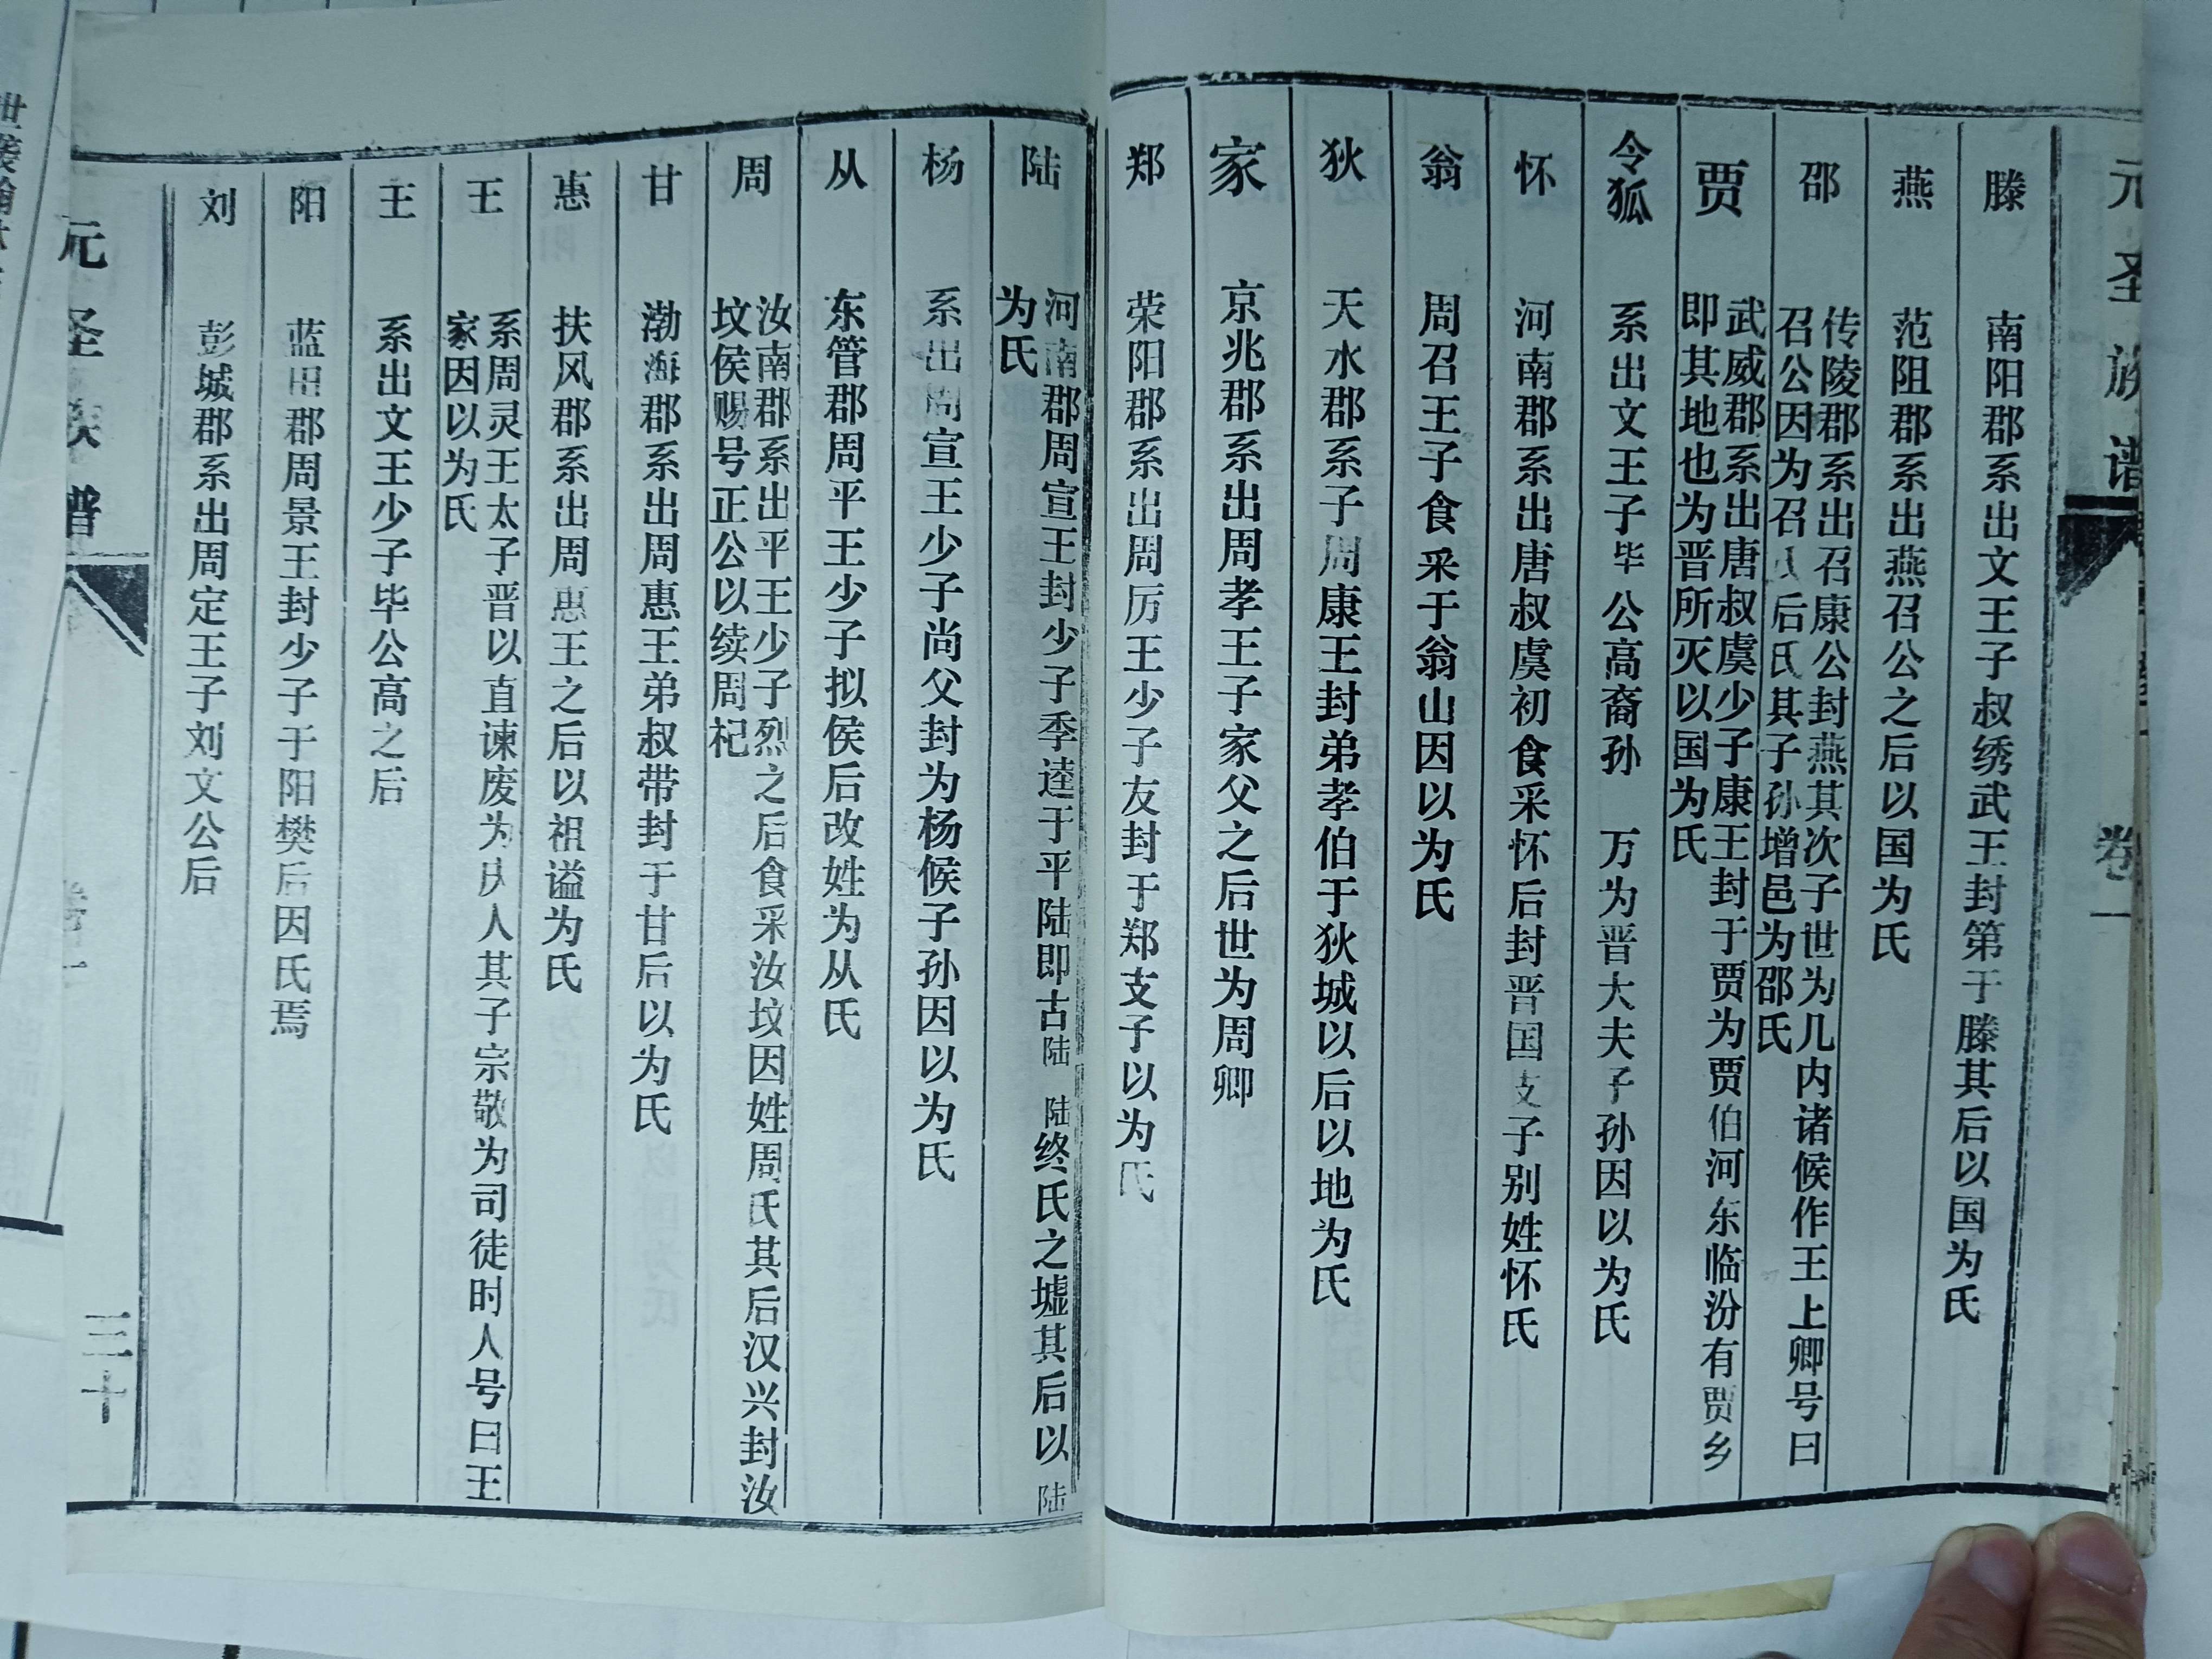 元圣族谱 卷一
滕 南阳郡系出文王子叔绣武王封第于滕其后以国为氏
燕 范阳郡系出燕召公之后以国为氏
邵 传陵郡系出召康公封燕其次子世为几内诸候作王上卿号曰
召公因为召 后氏其子孙增邑为邵氏
贾 武威郡系出唐叔虞少子康王封于贾为贾伯河东临汾有贾乡
即其地也为晋所灭以国为氏
令狐 系出文王子毕公高裔孙 万为晋大夫子孙因以为氏
怀 河南郡系出唐叔虞初食采怀后封晋国支子别姓怀氏
翁 周召王子食采于翁山因以为氏
狄 天水郡系子周康王封弟孝伯于狄城以后以地为氏
家 京兆郡系出周孝王子家父之后世为周卿
郑 荣阳郡系出周厉王少子友封于郑支子以为氏
陆 河南郡周宣王封少子季逵于平陆即古陆 陆终氏之墟其后以 陆
为氏
杨 系出周宣王少子尚父封为杨候子孙因以为氏
从 东管郡周平王少子拟侯后改姓为从氏
周 汝南郡系出平王少子烈之后食采汝坟因姓周氏其后汉兴封汝
坟侯赐号正公以续周祀
甘 渤海郡系出周惠王弟叔带封于甘后以为氏
惠 扶风郡系出周惠王之后以祖谥为氏
王 系周灵王太子晋以直谏废为庆人其子宗敬为司徒时人号曰王
家因以为氏
王 系出文王少子毕公高之后
阳 蓝田郡周景王封少子于阳樊后因氏焉
刘 彭城郡系出周定王子刘文公后
元圣族谱 卷一 三十